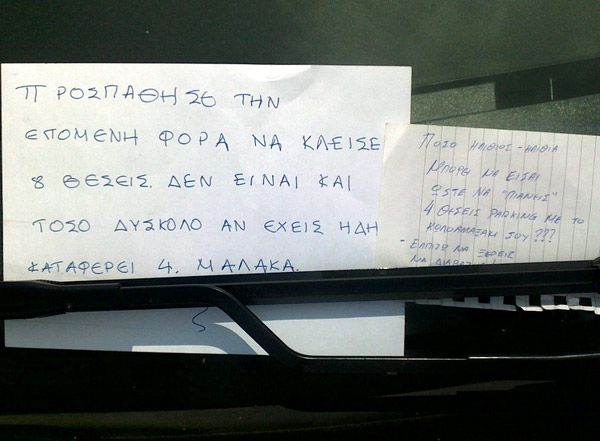 ΠΡΟΣΠΑΘΗΣΕ ΤΗΝ
ΕΠΟΜΕΝΗ ΦΟΡΑ ΝΑ ΚΛΕΙΣΕ
8 ΘΕΣΕΙΣ. ΔΕΝ ΕΙΝΑΙ ΚΑΙ
ΤΟΣΟ ΔΥΣΚΟΛΟ ΑΝ ΕΧΕΙΣ ΗΔΗ
ΚΑΤΑΦΕΡΕΙ 4. ΜΑΛΑΚΑ.
ΠΟΣΟ ΗΛΙΘΙΟΣ-ΗΛΙΘΙΑ
ΜΠΟΡΕΙ ΝΑ ΕΙΣΑΙ
ΩΣΤΕ ΝΑ "ΠΙΑΝΕΙΣ"
4 ΘΕΣΕΙΣ PARKING ΜΕ ΤΟ
ΚΩΛΟΑΜΑΞΑΚΙ ΣΟΥ???
- ΕΛΠΙΖΩ ΝΑ ΞΕΡΕΙΣ
ΝΑ